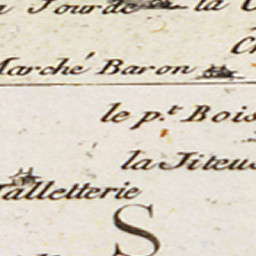 Jourde la
Marché Baron
le p.t Bois
la Jiteus
Talletterie
S